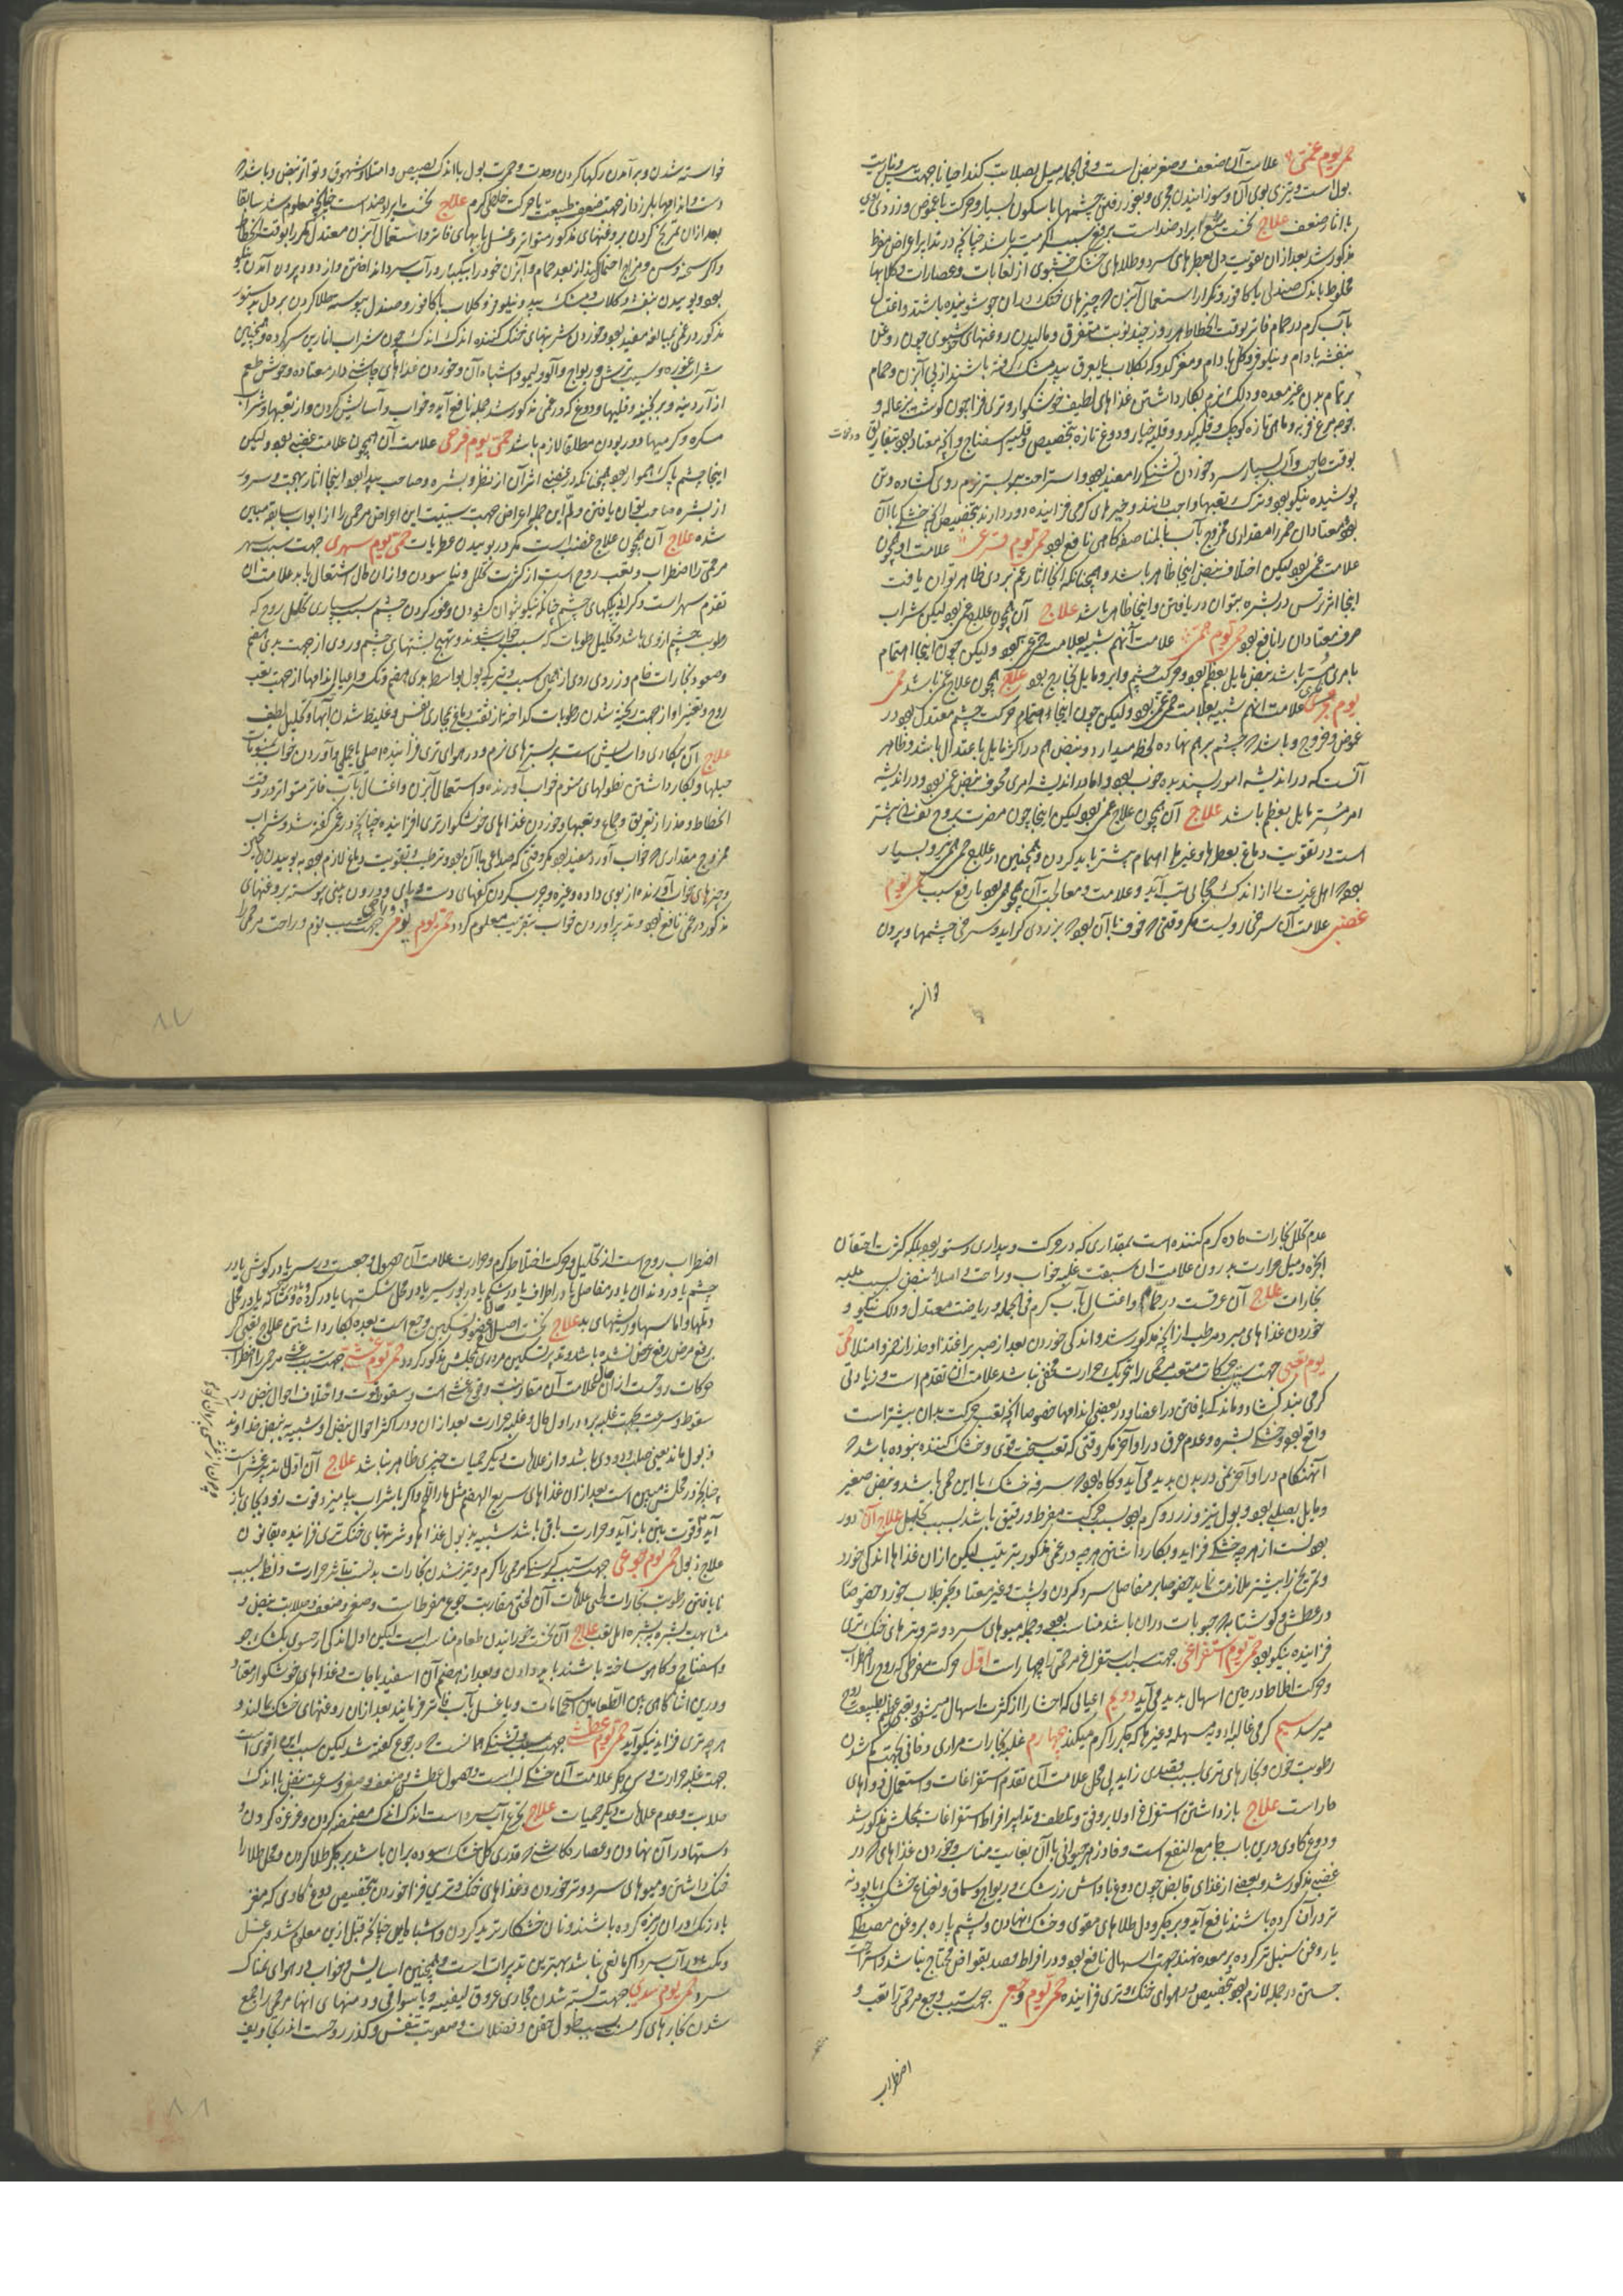 حمی یوم غمی علامت آن ضعف و صغر نبض است و فی الجمله میل بصلابت کند احیانا جهت یبس و ناریت
بول است و تیزی بوی آن و سوزانیدن مجری و بغور رفتن چشمها با سکون بسیار و حرکت با غوض و زردی روی
با آثار ضعف علاج نخست منع ایراد ضد است برفع سبب اگر میسر باشد چنانچه در تدابیر اعراض مفرط
مذکور شد بعد ازان تقویت دل بعطرهای سرد و طلاهای خنک خشبوی از لعابات و عصارات و گلابها
مخلوط باندک صندل یا کافور و تکرار استعمال آبزن که چیزهای خنک دران جوشیده باشند و اغتسال
بآب گرم در حمام فاتر بوقت انحطاط هر روز چند نوبت متفرق و مالیدن روغنهای خشبوی چون روغن
بنفشه بادام و نیلوفر و گل بادام و مغز کدو که بگلاب یا بعرق بید مشک گرفته باشند از پی آبزن و حمام
بر تمام بدن غیر معده و دلک نرم بکار داشتن غذاهای لطیف خوشگوار و تری فزا چون گوشت بزغاله و
جوجه مرغ فربه و ماهی تازه کوچک و قلیه کدو و قلیه خیار و دوغ تازه بتخصیص و قلیه اسفناج و آنچه معتاد بود بتفاریق
بوقت حاجت و آب بسیار سرد خوردن تشنگی را مفید بود و استراحت بر بستر نرم روی گشاده و تن
پوشیده نیکو بود و ترک تعبها واجب دانند و چیزهای گرمی فزاینده دور دارند بتخصیص آنچه خشکی با آن
بود معتادان خمر را مقداری ممزوج بآب بالمناصفه گاهی نافع بود حمی یوم فزعی علامت او همچون
علامت غمی بود لیکن اختلاف نبض اینجا ظاهر باشد و همچنانکه آنجا آثار غم بزردی ظاهر توان یافت
اینجا اثر ترس در بشره بتوان دریافتن و اینجا ظاهر باشد علاج آن همچون علاج غمی بود لیکن شراب
صرف معتادان را نافع بود حمی یوم همی علامت آنهم شبیه بعلامت غمی بود ولیکن چون اینجا اهتمام
بامری باشد نبض مایل بعظم بود و حرکت چشم و ابرو مایل بخارج بود علاج همچون علاج غمی باشد حمی
یوم فکری علامت اینهم شبیه بعلامت حمی غمی بود ولیکن چون اینجا اهتمام حرکت چشم معتدل بود در
غوض و خروج و باشد که چشم بر هم نهاده لحظه میدارد و نبض هم در اکثر مایل باعتدال باشد و ظاهر
آنست که در اندیشه امور پسندیده خوب بود و اما در اندیشه امری مخوف نبض غمی بود و در اندیشه
امر مسر مایل بعظم باشد علاج آن همچون علاج غمی بود لیکن اینجا چون مضرت بروح نفسانی بیشتر
است در تقویت دماغ بعطرها و غیر ما اهتمام بیشتر باید کردن و همچنین در علاج حمی همی و بسیار
بود که اهل عزت را از اندک خجالی تب آید و علامت و معالجات آن همچو غمی بود با رفع سبب حمی یوم
غضبی علامت آن سرخی رویست مگر وقتی که خوف با آن بود که بزردی گراید و سرخی چشمها و بیرون
خواسته
خواسته شدن و برآمدن رگها گردن و حدت و حمرت بول با اندک بصیص و امتلا و شهوق و تواتر نبض و باشد که
دست و اندامها بلرزد از جهت ضعف طبیعت یا حرکت خلطی گرم علاج نخست ایراد ضد است چنانچه معلوم شد سابقا
بعد ازان تمریخ کردن بروغنهای مذکور متواتر و غسل بابهای فاتر و استعمال آبزن معتدل مکرر بوقت انحطاط
و اگر سحنه و سن و مزاج احتمال کند از بعد حمام و آبزن خود را بیکبار در آب سرد انداختن و از دو زود بیرون آمدن نیکو
بود و بوییدن بنفشه و گلاب و بید مشک و نیلوفر و گلاب با کافور و صندل پیوسته طلا کردن بر دل بدستور
مذکور در غمی بمبالغه مفید بود و خوردن شربتهای خنک کننده اندک اندک چون شراب انارین سرکرده و همچنین
شراب غوره و سیب ترش و ریواج و آلو و لیمو و اشباه آن و خوردن غذاهای چاشنی دار معتاده و خوش طعم
از آردینه و برنجینه و قلیها و دوغ که در غمی مذکور شد جمله نافع آید و خواب و آسایش کردن و از تعبها و شراب
مسکره و گرمیها دور بودن مطلقا لازم باشد حمی یوم فرحی علامت آن همچون علامت غضبی بود ولیکن
اینجا چشم پاک و هموار بود و همچنانکه در غضبی اثر آن از نظر و بشره و صاحب پیدا بود اینجا آثار بهجت و سرور
از بشره صاحب توان یافتن و لم این جمله اعراض جهت سببیت این اعراض مر حمی را از ابواب سابقه مبین
شده علاج آن همچون علاج غضبی است مگر در بوییدن عطریات حمی یوم سهری جهت سبب سهر
مر حمی را اضطراب و تعب روح است از کثرت تحلل و نیاسودن و ازان حال اشتعال یابد علامت ان
تقدم سهر است و گرانی پلکهای چشم چنانکه نیکو نتوان گشودن و غور کردن چشم بسبب بسیاری تحلیل روح که
رطوبت چشم از وی باشد و تحلیل رطوبات که سبب خواب شوند و تهیج پشتهای چشم و روی از جهت بدی هضم
و صعود بخارات خام و زردی روی از همین سبب و تیرگی بول بواسطه بدی هضم و تکسر و اعیا اندامها از جهت تعب
روح و تغییر آواز جهت ریخته شدن رطوبات گداخته از ثقب دماغ بمجاری نفس و غلیظ شدن آنها و تحلیل لطیف
علاج آن بیکاری و آسایش است بر بسترهای نرم و در هوای تری فزاینده اصلی یا جعلی و آوردن خواب بمنومات
حیلها و بکار داشتن نطولهای منوم خواب آورنده و استعمال آبزن و اغتسال بآب فاتر متواتر در وقت
انحطاط و حذر از تعریق و جماع و تعبها و خوردن غذاهای خوشگوار تری افزاینده چنانچه در غمی گفته شد و شراب
ممزوج مقداری که خواب آورد مفید بود مگر وقتی که صداعی با آن بود و ترطیب و تقویت دماغ لازم بود به بوییدنی خنک
و چیزهای خواب آورنده از بوی داده و غیره و چرب کردن کفهای دست و پای و درون بینی پیوسته بروغنهای
مذکور در غمی نافع بود و تدبیر آوردن خواب بتقریب معلوم گردد حمی یوم نومی و راحی جهت سبب نوم و راحت مر حمی را
عدم تحلل بخارات حاده گرم کننده است بمقداری که در حرکت و بیداری دستور بود بلکه کثرت احتقان
ابخره و میل حرارت بدرون علامت ان سبقت غلبه خواب و راحت و امتلاء نبض بسبب غلبه
بخارات علاج آن عرقست در حمام و اغتسال بآب گرم فی الجمله و ریاضت معتدل و دلک نیکو و
خوردن غذاهای مبرد مرطب از آنچه مذکور شد و اندکی خوردن بعد از صبر بر اغتذا و حذر از خمر و امتلا حمی
یوم تعبی جهت سبب حرکات متعبه مر حمی را تحریک حرارت مخفی نباشد علامت ان تقدم است و زیادتی
گرمی بندگشاد و ماندگی یافتن در اعضا و در بعضی اندامها خصوصا آنچه تعب حرکت بدان بیشتر است
واقع بود و خشکی بشره و عدم عرق در اواخر مگر وقتی که تعب سخت قوی و خشک کننده نبوده باشد که
آنهنگام در اواخر نمی در بدن پدید می آید و گاه بود که سرفه خشک با این حمی باشد و نبض صغیر
و مایل بصلبی بود و بول تیز و زرد و گرم بود بسبب حرکت مفرط و رقیق باشد بسبب تحلیل علاج آن دور
بودنست از هر چه خشکی فزاید و بکار داشتن هر چه در غمی مذکور بترتیب لیکن ازان غذاها اندکی خورد
و تمریخ را بیشتر ملازمت نماید خصوصا بر مفاصل سر و گردن و پشت و غیر معتاد و بخمر جلاب خورد خصوصا
در عطش و کوشتابه که حبوبات دران باشد مناسب بود و جمله میوهای سرد و تر و تره های خنک و تری
فزاینده نیکو بود حمی یوم استفراغی جهت سبب استفراغ مر حمی را چهار است اول حرکت مفرطی که روح را اضطراب
و حرکت اخلاط در حین اسهال پدید می آید دویم اعیائی که احشا را از کثرت اسهال میشود و تعبی عظیم بطبیعت و روح
میرسد سیم گرمی غالب ادویه مسهله و غیرها که جگر را گرم میکند چهارم غلبه بخارات مراری و دخانی بجهت کم شدن
رطوبت خون و بخارهای تری بسبب فصدی زاید بی محل علامت آن تقدم استفراغات و استعمال دواهای
حار است علاج باز داشتن استفراغ اولا برفق و تلطف و تدابیر افراط استفراغات بمحلش مذکور شد
و دوغ گاوی درین باب جامع النفع است و فادزهر حیوانی با آن بغایت مناسب و خوردن غذاهای که در
غضبی مذکور شد و بعضی از غذای قابض چون دوغ با و آش زرشک و ریواج و سماق و نعناع خشک یا پودنه
تر در آن کرده باشند نافع آید و بر جگر و دل طلاهای مقوی و خنک نهادن و پشم پاره بروغن مصطکی
یا روغن سنبل تر کرده بر معده نهند جهت اسهال نافع بود و در افراط فصد بقوابض محتاج نباشد و استراحت
جستن در جمله لازم بود بتخصیص در هوای خنک و تری فزاینده حمی یوم وجعی جهت سبب وجع مر حمی را تعب و
اضطراب
اضطراب روح است از تحلیل و حرکت اخلاط گرم و حرارت علامت آن حصول وجعست در سر یا در گوش یا در
چشم یا در دندان یا در مفاصل یا در اطراف یا در شکم یا در بواسیر یا در محل شکستها یا در گرده و مثانه یا در محل
دملها و اماسها و ریشهای بد علاج نخست اصلاح عضو و تسکین وجع است بعده بکار داشتن علاج تعبی اگر
برفع مرض رفع عرض نشده باشد و تدابیر تسکین هر وجع بمحلش مذکور گردد حمی یوم غشی جهت سبب غشی مر حمی را اضطراب
حرکات روحست ازان حال علامت آن مقارنت وقوع غشی است و سقوط قوت و اختلاف احوال نبض در
سقوط و سرعت بحسب غلبه برد در اول حال و غلبه حرارت بعد ازان و در اکثر احوال نبض او شبیه به نبض خداوند
ذبول ماند یعنی صلب و دودی باشد و از علامات دیگر حمیات چیزی ظاهر نباشد علاج آن اول تدبیر غشی است
چنانچه در محلش مبین است بعد ازان غذاهای سریع الهضم مثل ماء اللحم و اگر با شراب بیامیزد قوت زود بجای باز
آید و قوت بتن باز آید و حرارت باقی باشد شبیه بذبول غذاها و شربتهای خنک تری فزاینده بقانون
علاج ذبول حمی یوم جوعی جهت سببیت گرسنگی مر حمی را گرم و تیز شدن بخارات بدنست بتاثیر حرارت در خلط بسبب
نایافتن رطوبت بخارات طعامی علامت آن لختی مقارنت جوع مفرط است و صغر و ضعف و صلابت نبض و
مشابهت بشره به بشره اهل تعب علاج آن نخست چرانیدن طعام مناسب است لیکن اول اندکی از حسوی کشک جو
و اسفناج و کاهو ساخته باشند باید دادن و بعد از هضم آن اسفیدباجات و غذاهای خوشگوار معتاد
و درین اثنا گاهی بین الطعامین استحمامات و یا غسل بآب فاتر فرمایند بعد ازان روغنهای خنک مالند و
هر چه تری فزاید نیکو آید حمی یوم عطشی جهت سبب تشنگی همانست که در جوع گفته شد لیکن سبب اینجا اقوی است
جهت غلبه حرارت بی محل علامت آن خشکی لب است و حصول عطش و ضعف و صغر و سرعت نبض با اندک
صلابت و عدم علامات دیگر حمیات علاج تجرع آب سرد است اندک اندک و مضمضه کردن و غرغره کردن و
دستها در آن نهادن و عصاره کاسنی که قدری گل خنک سوده بران باشد بر جگر طلا کردن و محل طلا را
خنک داشتن و میوهای سرد و تر خوردن و غذاهای خنک و تری فزا خوردن بتخصیص دوغ گاوی که مغز
بادرنگ دران ریزه کرده باشند و نان خشکار ترید کردن و اشباه این چنانچه قبل ازین معلوم شد و غسل
و مکث در آب سرد اگر مانعی نباشد بهترین تدبیرات است و همچنین آسایش و خواب در هوای نمناک
سرد حمی یوم سدی جهت بسته شدن مجاری عروق لیفیه و یا سواقی و دهنهای آنها مر حمی را جمع
شدن بخارهای گرمست بسبب طول حقن و فضلات و صعوبت تنفس و گذر روحست اندر تجاویف